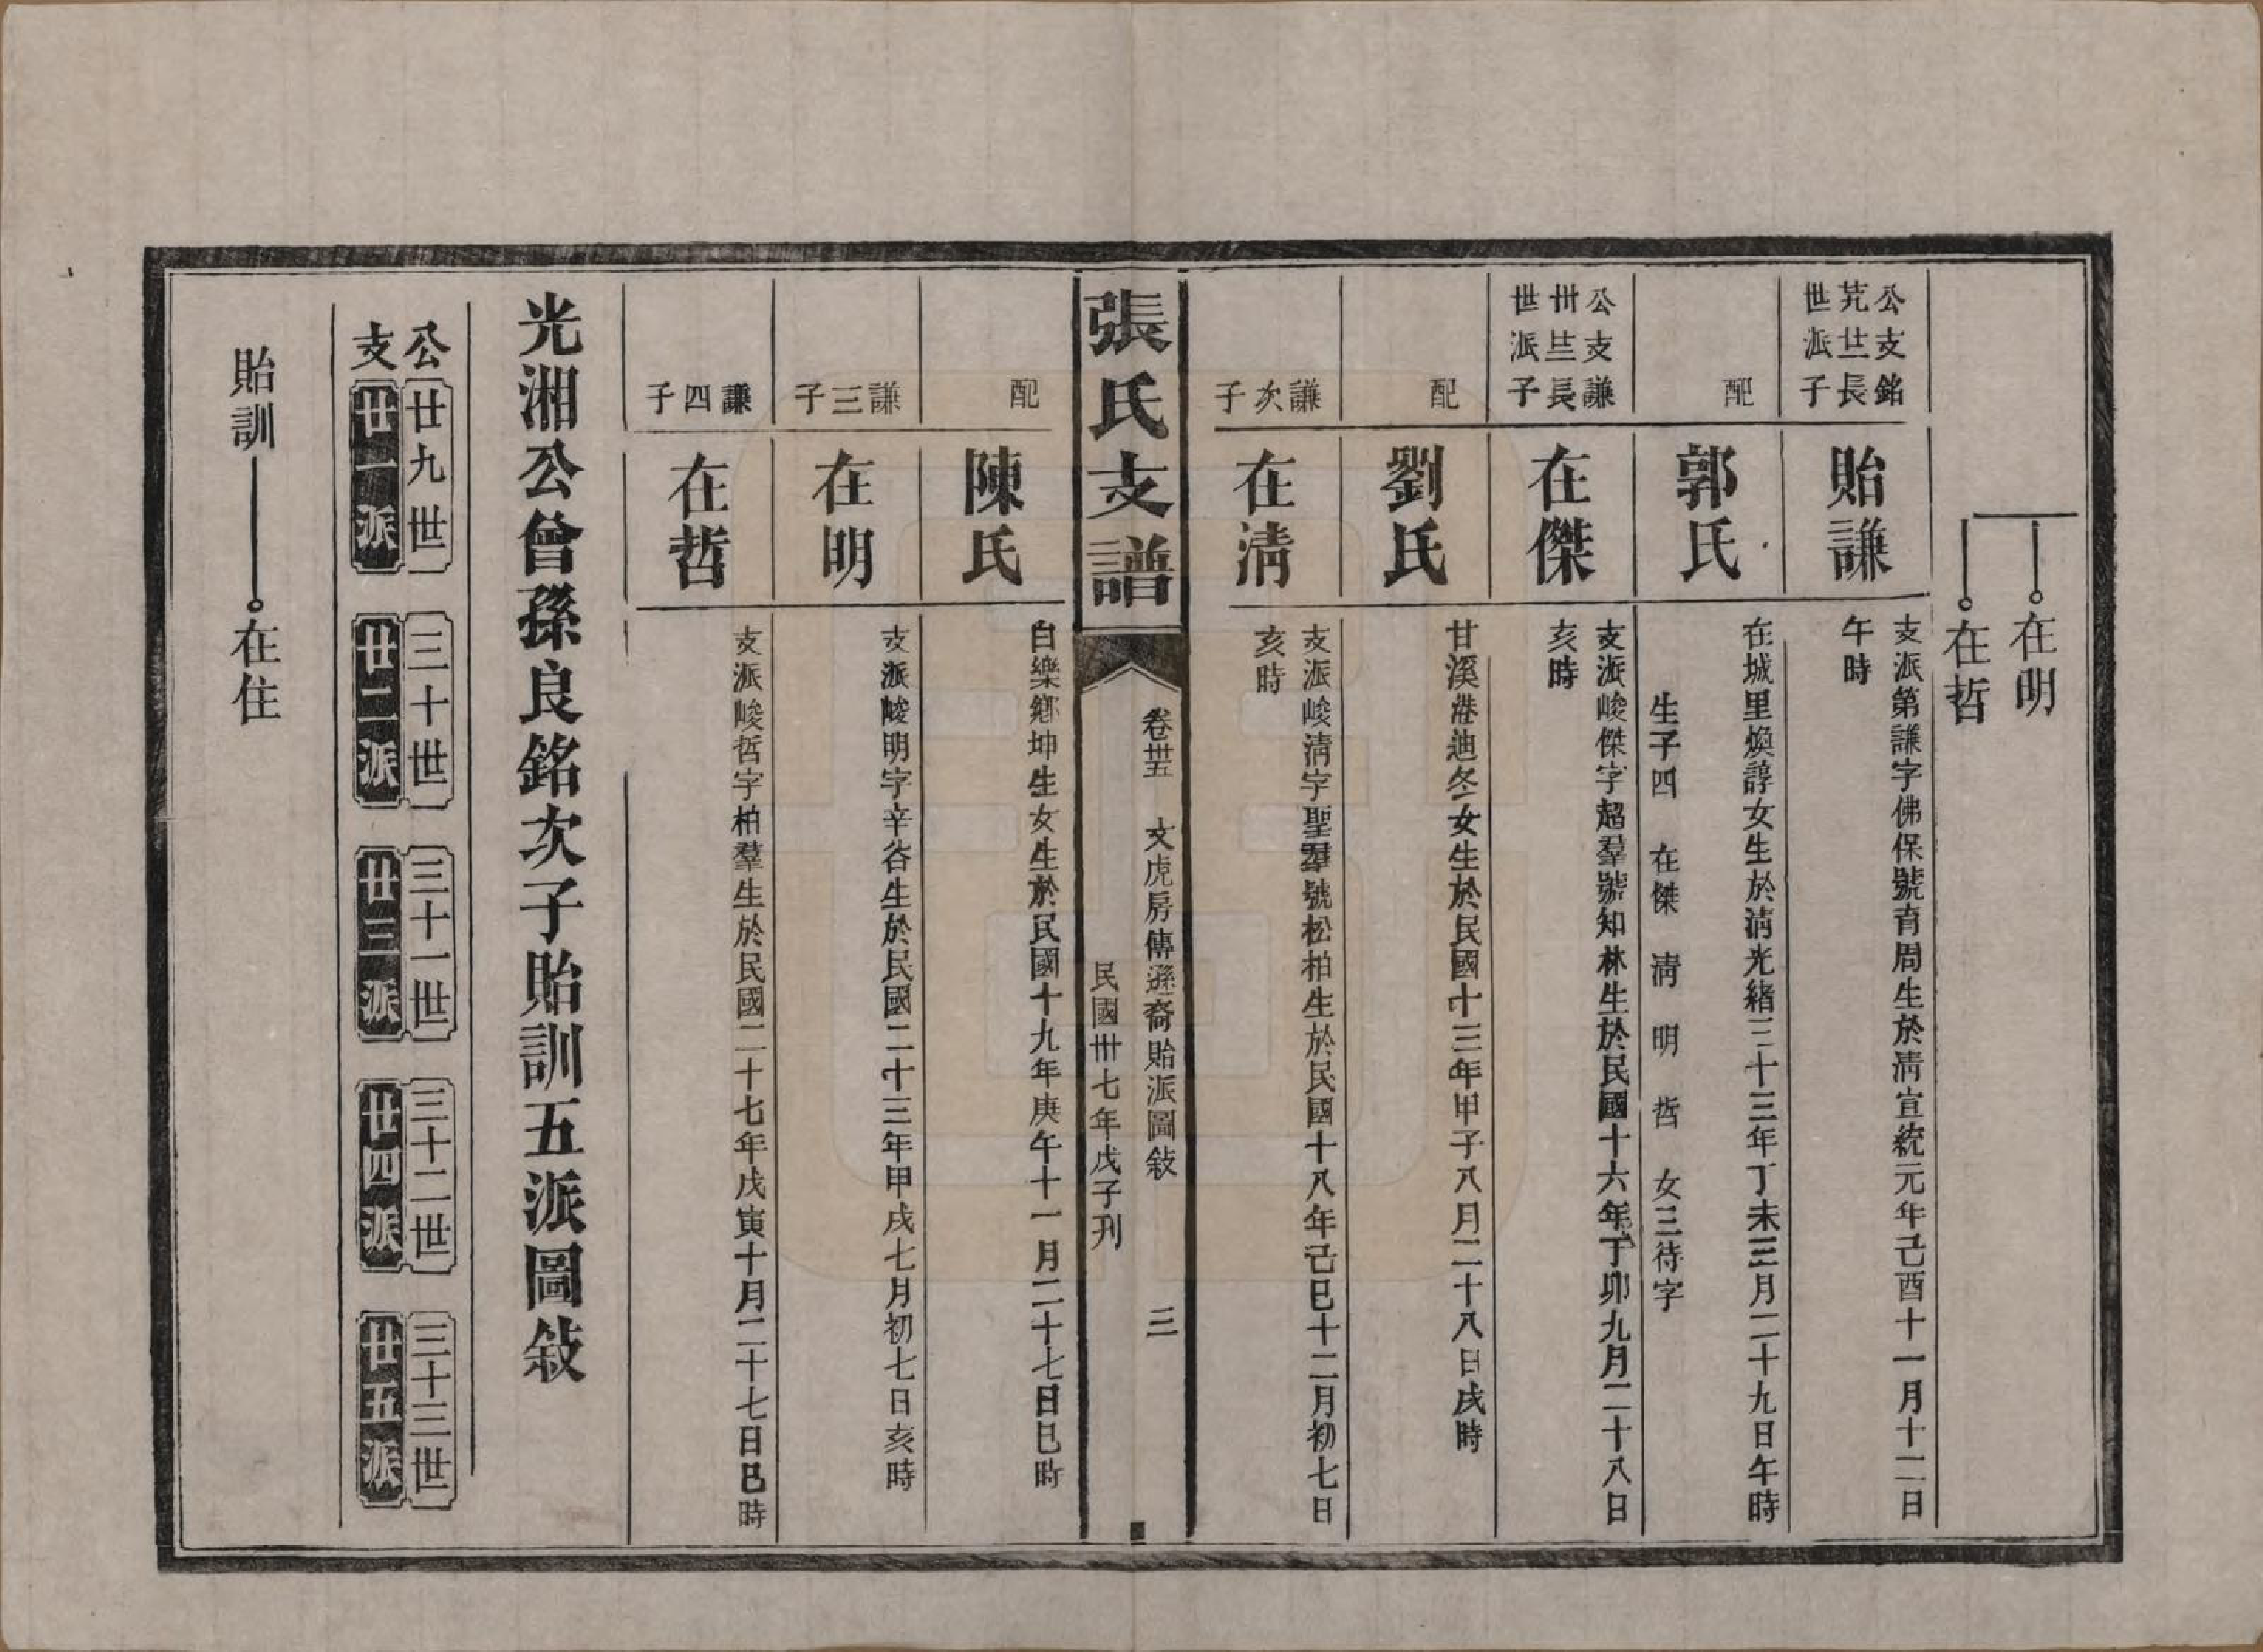 在明
在哲
公支銘
世派子
貽謙
支派第謙字佛保號育周生於清宣統元年己酉十一月十二日
午時
配
郭氏
在城里煥諄女生於清光緒三十三年丁未三月二十九日午時
生子四 在傑 清 明 哲 女三待字
公支謙
世派子
在傑
支派峻傑字超羣號知林生於民國十六年丁卯九月二十八日
亥時
配
劉氏
甘溪港迪冬女生於民國十三年甲子八月二十八日戌時
謙次子
在清
支派峻清字聖羣號松柏生於民國十八年己巳十二月初七日
亥時
張氏支譜
卷卅五 文虎房傳遜裔貽派圖敘 三
民國卅七年戊子刊
配
陳氏
白樂鄉坤生女生於民國十九年庚午十一月二十七日巳時
謙三子
在明
支派峻明字辛谷生於民國二十三年甲戌七月初七日亥時
謙四子
在哲
支派峻哲字柏羣生於民國二十七年戊寅十月二十七日巳時
光湘公曾孫良銘次子貽訓五派圖敘
公 廿九世 三十世 三十一世 三十二世 三十三世
支 廿一派 廿二派 廿三派 廿四派 廿五派
貽訓 在住